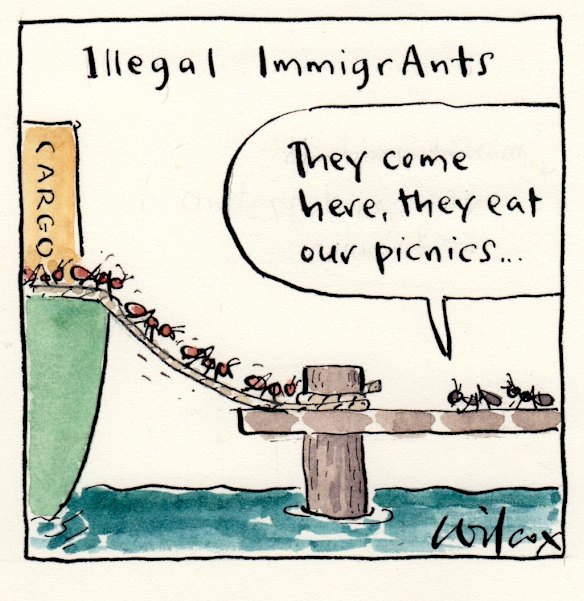 Illegal ImmigrAnts
CARGO
They come
here, they eat
our picnics...
Wilcox